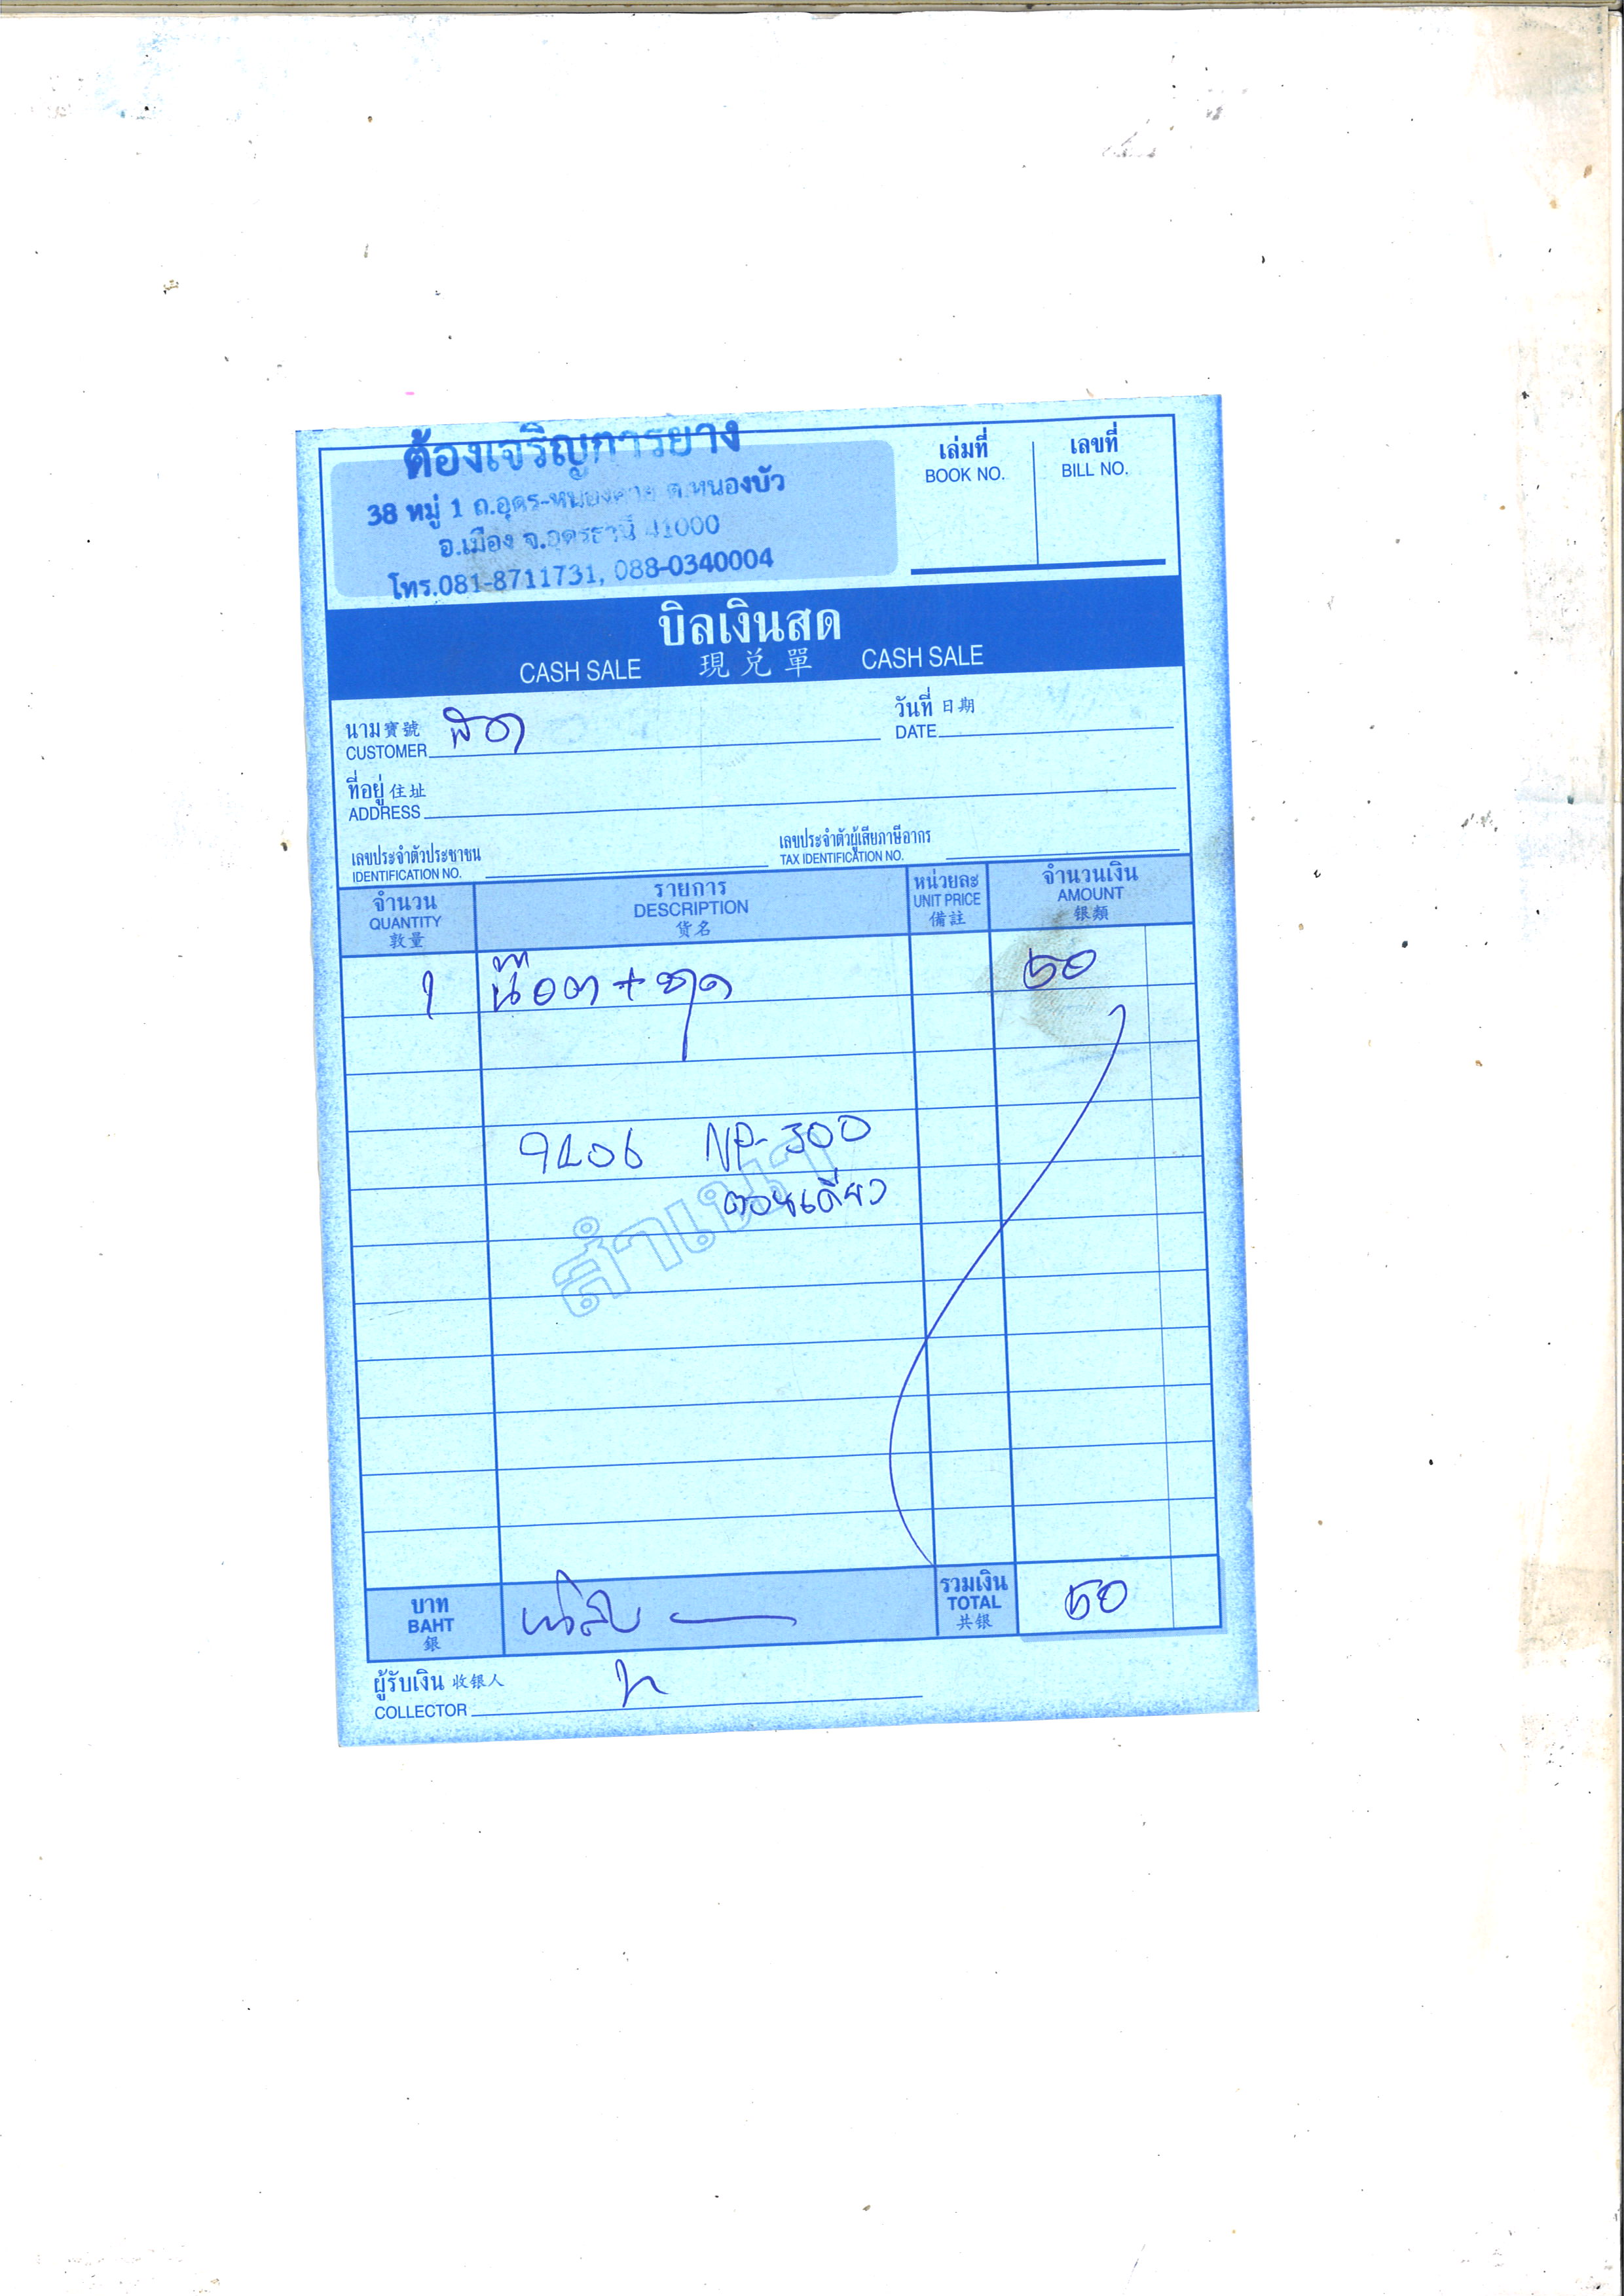 ต้องเจริญการยาง
38 หมู่ 1 ถ.อุดร-หนองคาย ต.หนองบัว
อ.เมือง จ.อุดรธานี 41000
โทร.081-8711731, 088-0340004
เล่มที่ เลขที่
BOOK NO. BILL NO.
บิลเงินสด
CASH SALE 現兑單 CASH SALE
นาม寶號
CUSTOMER
วันที่ 日期
DATE
ที่อยู่ 住址
ADDRESS
เลขประจำตัวประชาชน
IDENTIFICATION NO.
เลขประจำตัวผู้เสียภาษีอากร
TAX IDENTIFICATION NO.
จำนวน รายการ หน่วยละ จำนวนเงิน
QUANTITY DESCRIPTION UNIT PRICE AMOUNT
敦量 货名 備註 银類
1 น๊อต + 50
NP-300
ตอนเดียว
สำเนา
บาท ห้าสิบ รวมเงิน 50
BAHT TOTAL
銀 共银
ผู้รับเงิน 收银人
COLLECTOR